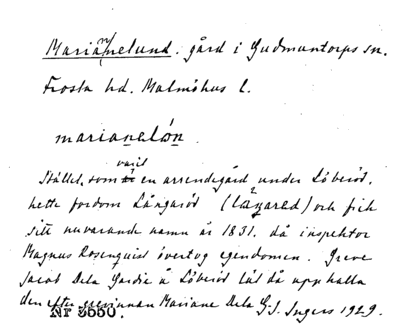 Marianelund. gård i Gudmuntorps sn.
Frosta hd. Malmöhus l.
marianelón
Stället, som varit en arrendegård under Löberöd,
hette fordom Långaröd (låzared) och fick
sitt nuvarande namn år 1831. då inspektor
Magnus Rosenquist övertog egendomen. Greve
Jacob Dela Gardie å Löberöd lät då uppkalla
den efter grevinnan Mariane Dela G. I. Ingers 1929.
Nr 3550.